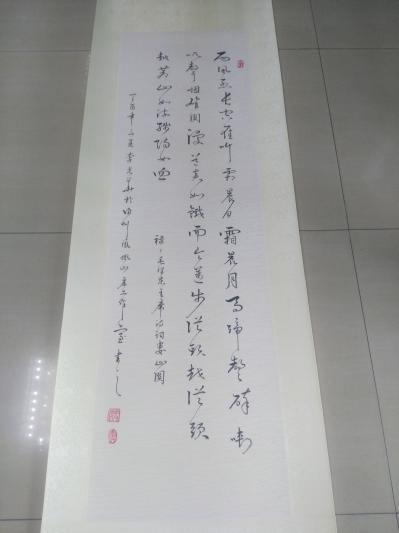 西风烈长空雁叫霜晨月霜晨月马蹄声碎喇
叭声咽雄关漫道真如铁而今迈步从头越从头
越苍山如海残阳如血
录毛泽东主席诗词娄山关
丁酉年之夏李光於州凤凰山庄工作室书之